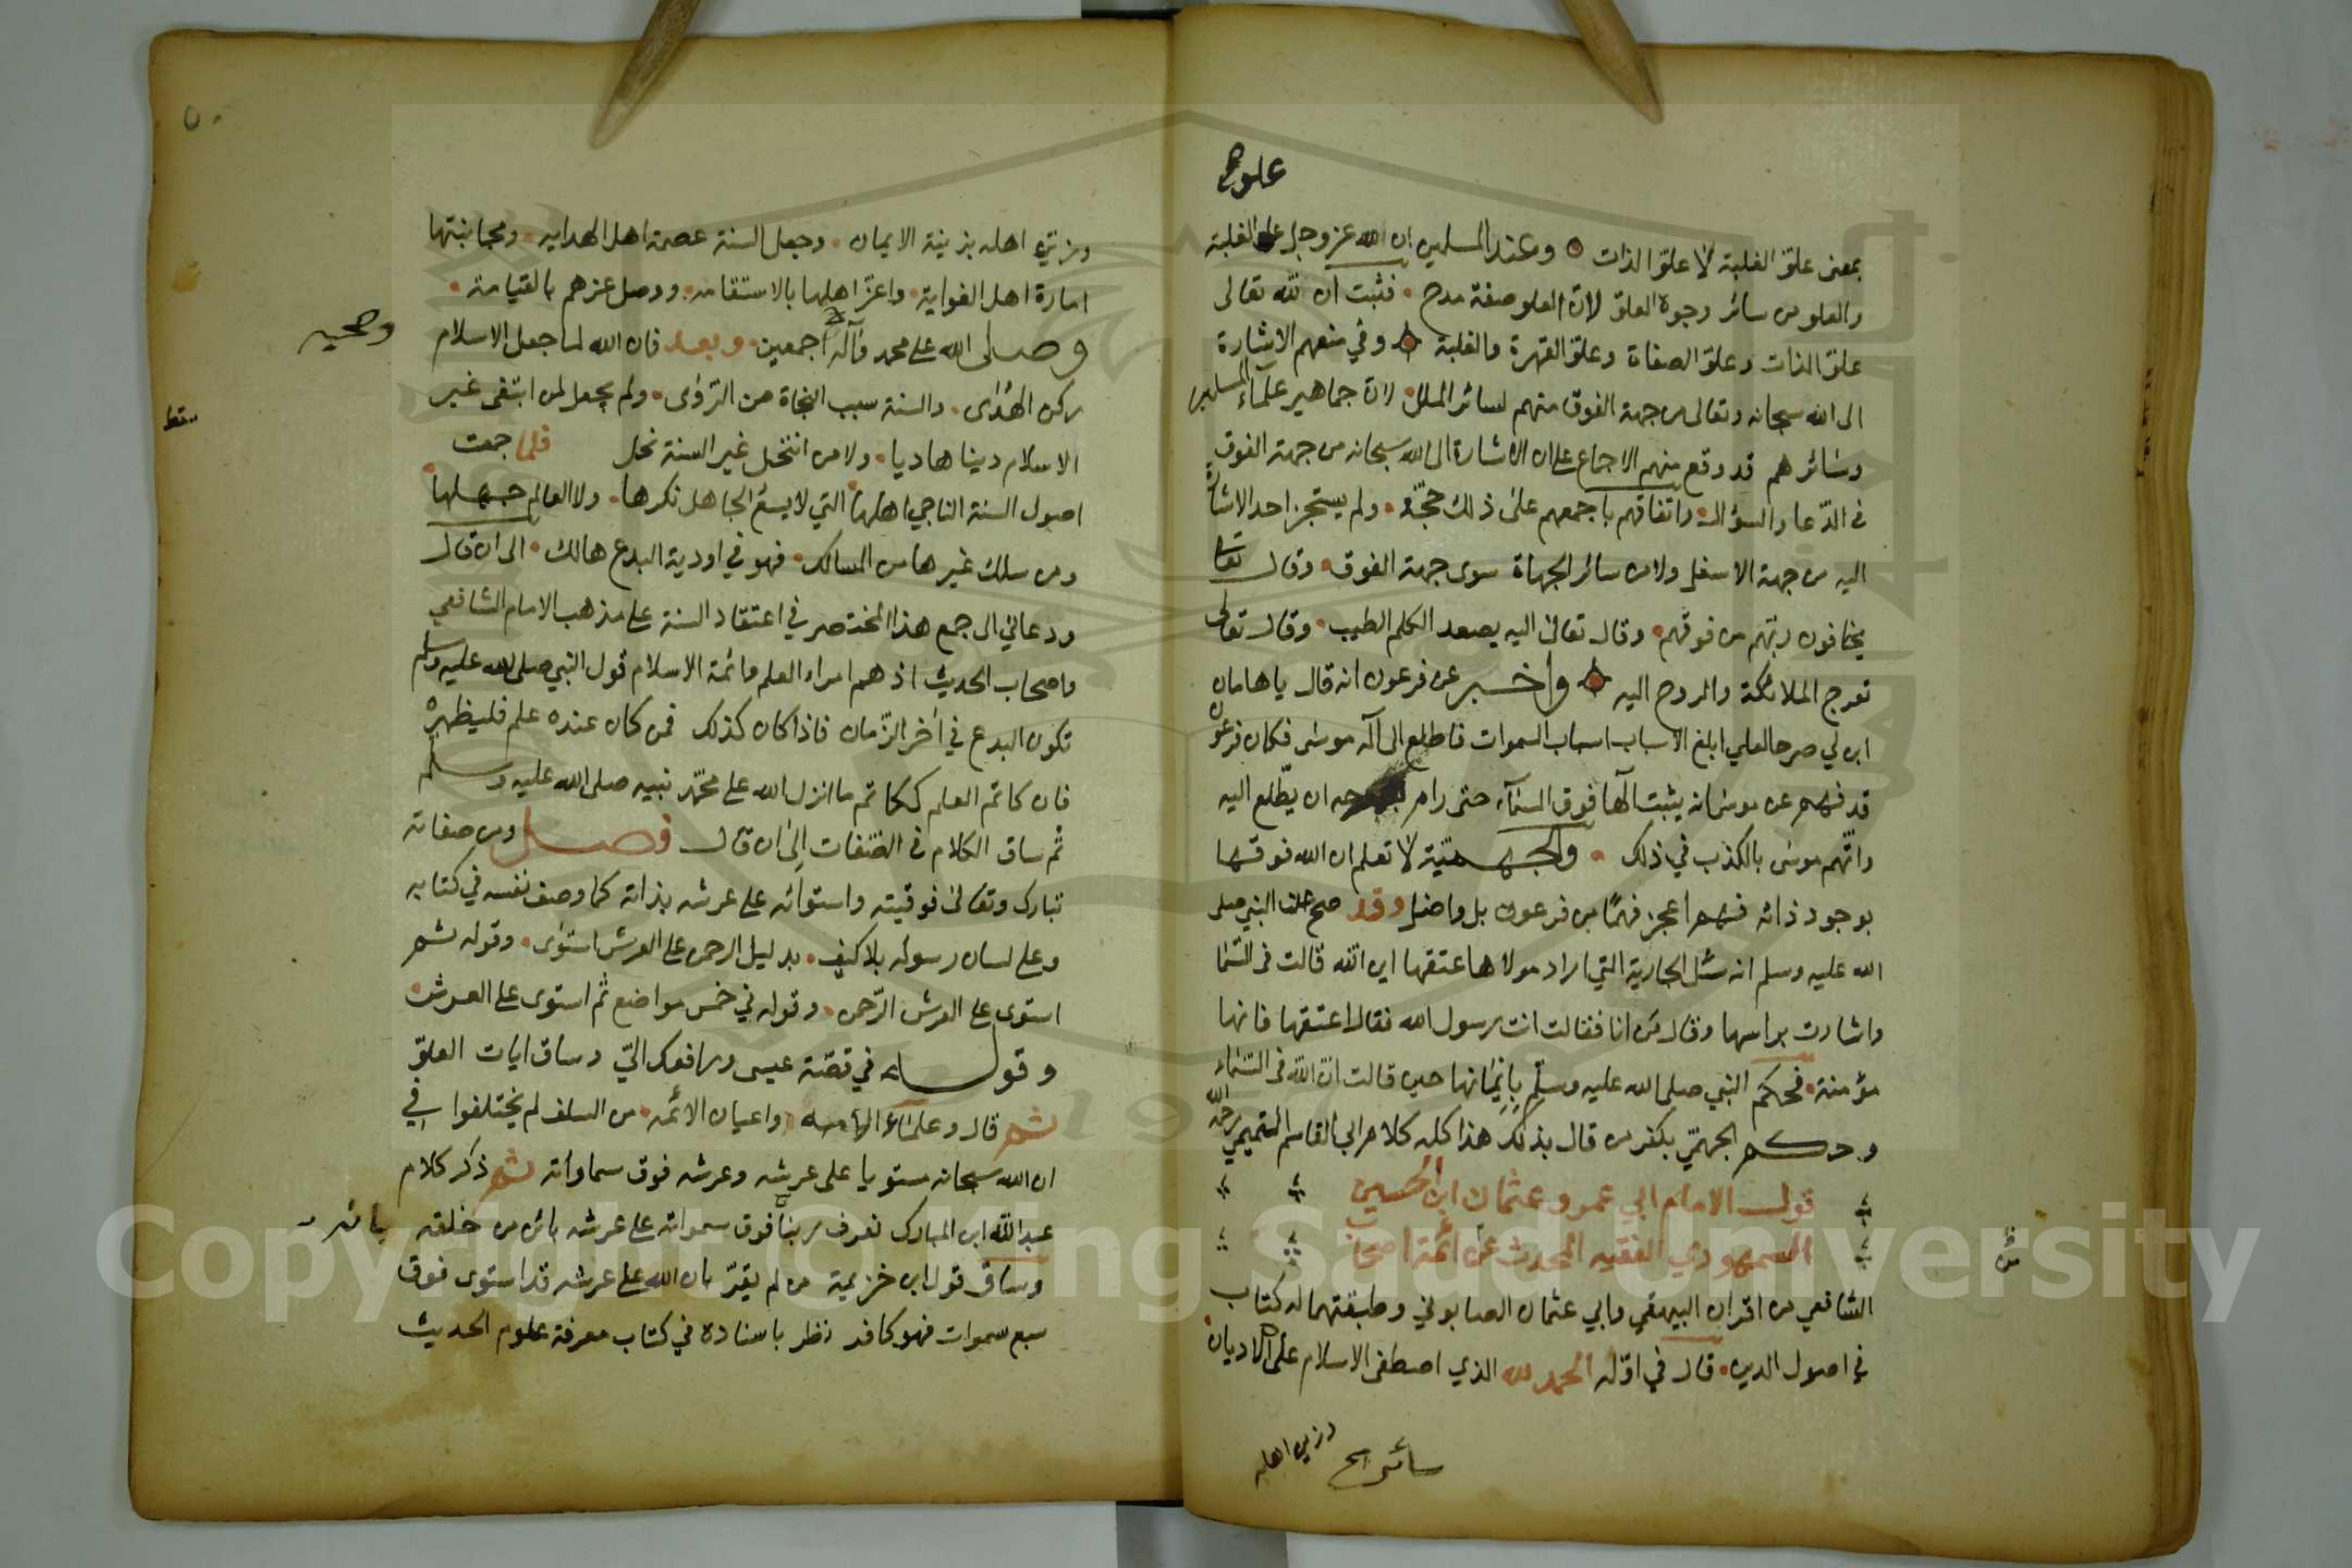 علو صح
بمعنى علوّ الغلبة لا علوّ الذات وعند المسلمين ان الله عزوجل علو الغلبة
والعلو من سائر وجوه العلوّ لان العلو صفة مدح فثبت ان لله تعالى
علوّ الذات وعلوّ الصفاة وعلوّ القهرة والغلبة وفي منعهم الاشارة
الى الله سبحانه وتعالى من جهة الفوق منهم لسائر الملل لان جماهير علماء المسلمين
وسائرهم قد وقع منهم الاجماع على ان الاشارة الى الله سبحانه من جهة الفوق
في الدّعا والسؤال واتفاقهم باجمعهم على ذلك حجّة ولم يستجز احد الاشارة
اليه من جهة الاسفل ولا من سائر الجهاة سوى جهة الفوق وقال تعا
يخافون ربّهم من فوقهم وقال تعالى اليه يصعد الكلم الطيب وقال تعالى
تعرج الملائكة والروح اليه واخبر عن فرعون انه قال ياهامان
ابن لي صرحا لعلي ابلغ الاسباب اسباب السموات فاطلع الى اله موسى فكان فرعون
قد فهم عن موسى انه يثبت الها فوق السمآء حتى رام بصرحه ان يطّلع اليه
واتّهم موسى بالكذب في ذلك والجهميّة لا تعلم ان الله فوقها
بوجود ذاته فهم اعجز فهمًا من فرعون بل واضل وقد صح عن النبي صلى
الله عليه وسلم انه سئل الجارية التي اراد مولاها عتقها اين الله قالت في السّما
واشارت براسها وقال من انا فقالت انت رسول الله فقال اعتقها فانها
مؤمنة فحكم النبي صلى الله عليه وسلّم بإيمانها حين قالت انّ الله في السّماء
وحكم الجهميّ بكفر من قال بذلك هذا كله كلام ابي القاسم التميمي رحمه الله
قول الامام ابي عمرو عثمان ابن الحسين
السمهودي الفقيه المحدث من ائمة اصحاب
الشافعي من اقران البيهقي وابي عثمان الصابوني وطبقتهما له كتاب
في اصول الدين قال في اوّله الحمد لله الذي اصطفى الاسلام على الاديان
سائر صح
وزين اهله
وزيّن اهله بزينة الايمان وجعل السنة عصمة اهل الهداية ومجانبتها
امارة اهل الغواية واعزّ اهلها بالاستقامة ووصل عزهم بالقيامة
وصلى الله على محمد وآله اجمعين وبعد فان الله لما جعل الاسلام
وصحبه
ركن الهُدى والسنة سبب النجاة من الرّدى ولم يجعل لمن ابتغى غير
الاسلام دينا هاديا ولا من انتحل غير السنة نحل فلما جمعت
اصول السنة الناجي اهلها التي لا يسع الجاهل نكرها ولا العالم جهلها
ومن سلك غيرها من المسالك فهو في اودية البدع هالك الى ان قال
ودعاني الى جمع هذا المختصر في اعتقاد السنة على مذهب الامام الشافعي
واصحاب الحديث اذ هم امراء العلم وائمة الاسلام قول النبي صلى الله عليه وسلم
تكون البدع في آخر الزّمان فاذا كان كذلك فمن كان عنده علم فليظهره
فان كاتم العلم ككاتم ما انزل الله على محمّد نبيه صلى الله عليه وسلم
ثم ساق الكلام في الصّفات الى ان قال فصل ومن صفاته
تبارك وتعالى فوقيته واستوائه على عرشه بذاته كما وصف نفسه في كتابه
وعلى لسان رسوله بلا كيف بدليل الرحمن على العرش استوى وقوله ثم
استوى على العرش الرّحمن وقوله في خمس مواضع ثم استوى على العرش
وقوله في قصّة عيسى ورافعك اليّ وساق ايات العلوّ
ثم قال وعلماء الامة واعيان الائمة من السلف لم يختلفوا في
ان الله سبحانه مستويا على عرشه وعرشه فوق سماواته ثم ذكر كلام
عبد الله ابن المبارك نعرف ربنا فوق سمواته على عرشه بائن من خلقه
وساق قول ابن خزيمة من لم يقرّ بان الله على عرشه قد استوى فوق
سبع سموات فهو كافر نظر باسناده في كتاب معرفة علوم الحديث
Copyright © King Saud University
1957